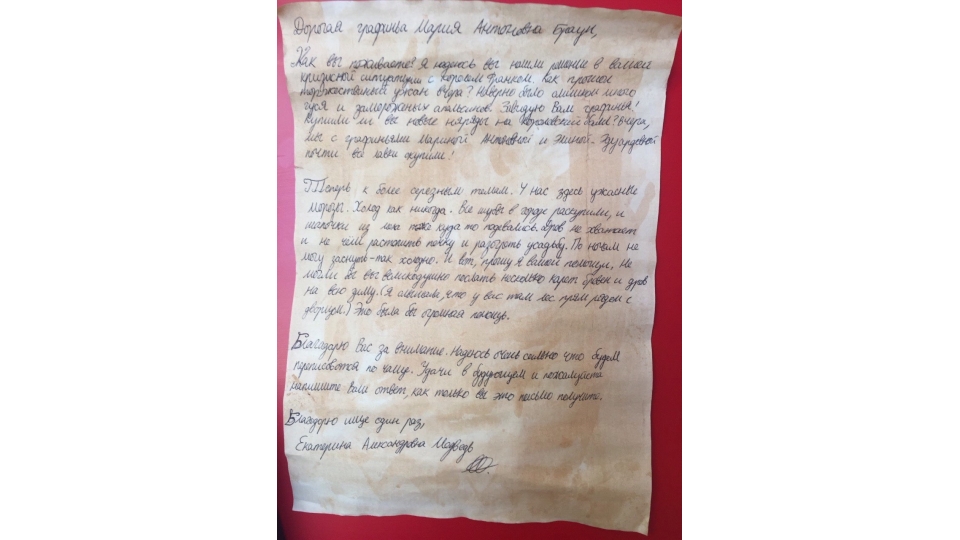 Дорогая графиня Мария Антоновна Браун,
Как вы поживаете? Я надеюсь вы нашли решение в вашей
кризисной ситуации с королём Франком. Как прошёл
торжественный ужин вчера? Наверно было слишком много
гуся и замороженых апельсинов. Завидую Вам графиня!
Купили ли вы новые наряды на Королевский бал? Вчера,
мы с графинями Мариной Антоновной и Эдуардовной
почти всё лавки скупили!
Теперь к более серезным темам. У нас здесь ужасные
морозы. Холод как никогда. Все шубы в городе раскупили, и
шапочки из меха тоже куда то подевались. Дров не хватает
и не чем растопить печку и разогреть усадьбу. По ночам не
могу заснуть-так холодно. И вот, прошу я вашей помощи, не
могли бы вы великодушно послать несколько карет брёвен и дров
на всю зиму. (Я слышала, что у вас там лес прям рядом с
дворцом.) Это была бы огромная помощь.
Благодарю Вас за внимание. Надеюсь очень сильно что будем
переписоватся по чаще. Удачи в будующем и пожалуйста
напишите Ваш ответ, как только вы это письмо получите.
Благодарю ище один раз,
Екатерина Александровна Медведь